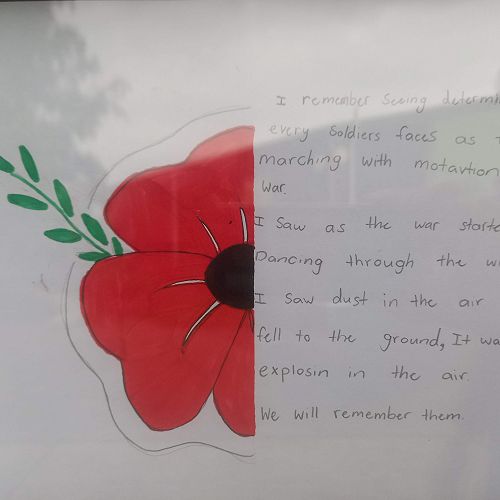 I remember Seeing
every Soldiers faces as
marching with motavtion
War.
I Saw as the war
Dancing through the
I Saw dust in the air
fell to the ground, It
explosin in the air.
We will remember them.